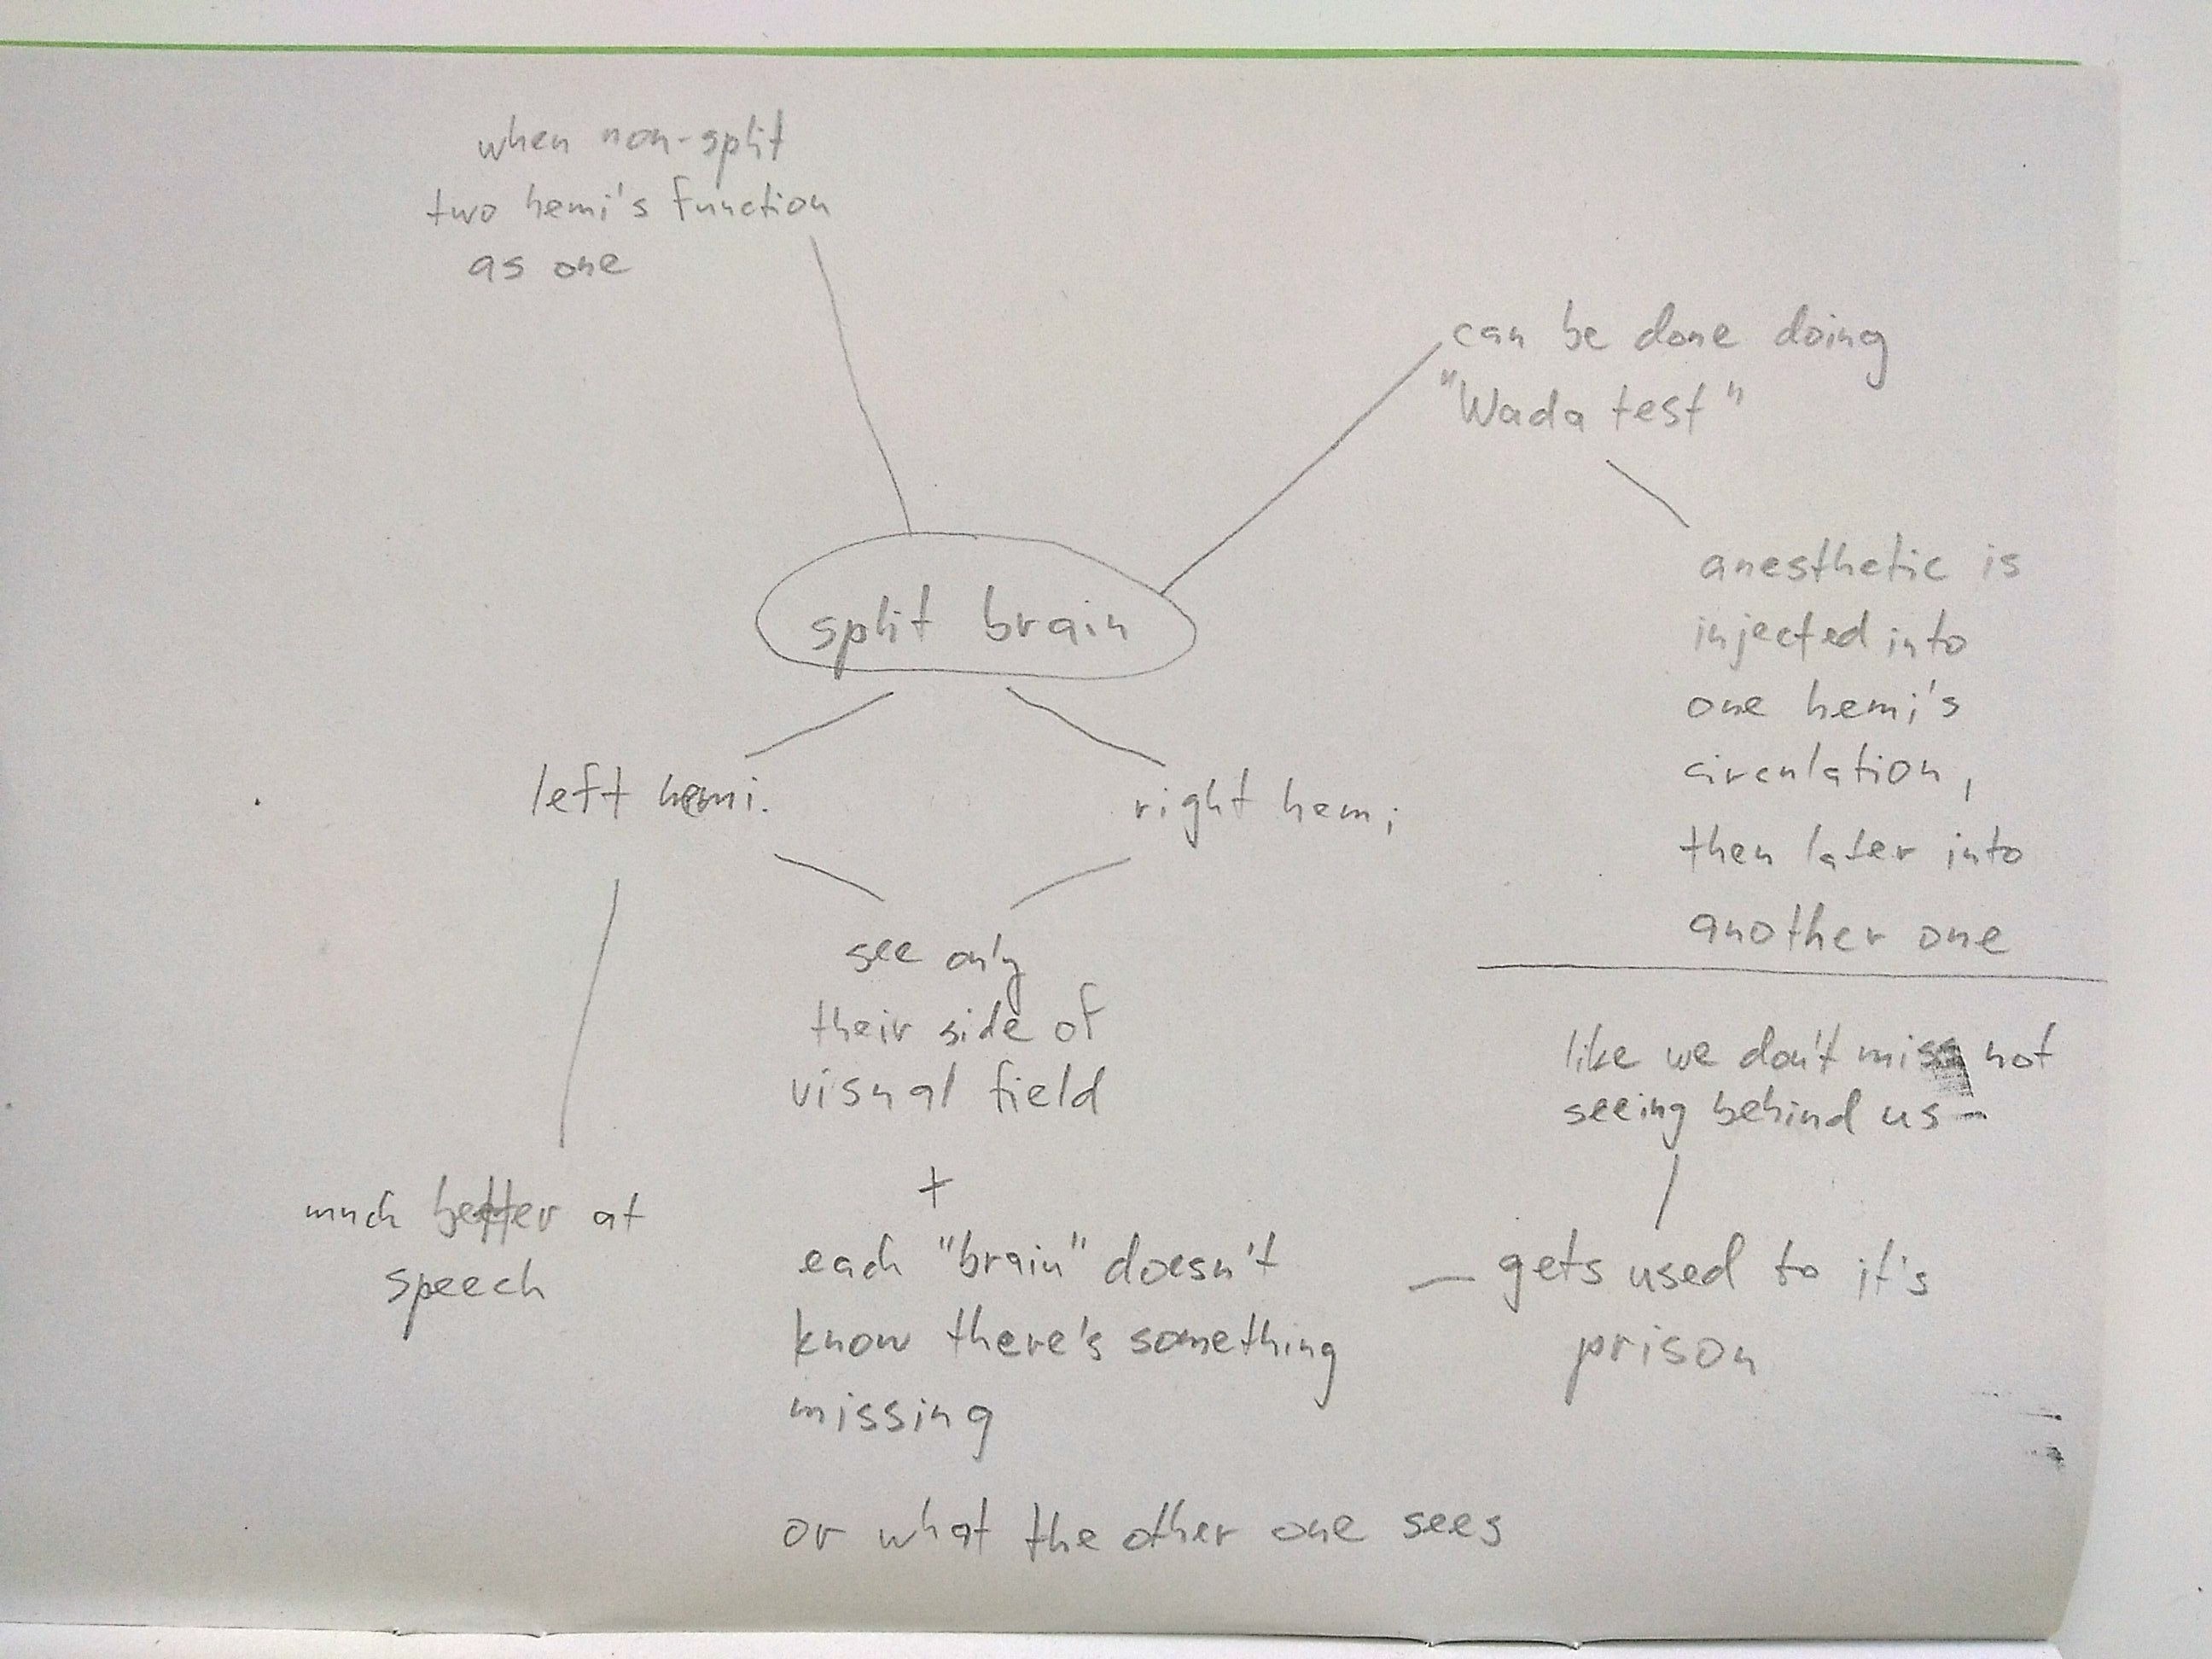 when non-split
two hemi's function
as one
can be done doing
"Wada test"
anesthetic is
injected into
one hemi's
circulation,
then later into
another one
split brain
left hemi.
right hemi
see only
their side of
visual field
+
each "brain" doesn't
know there's something
missing
or what the other one sees
much better at
speech
like we don't miss not
seeing behind us
gets used to it's
prison